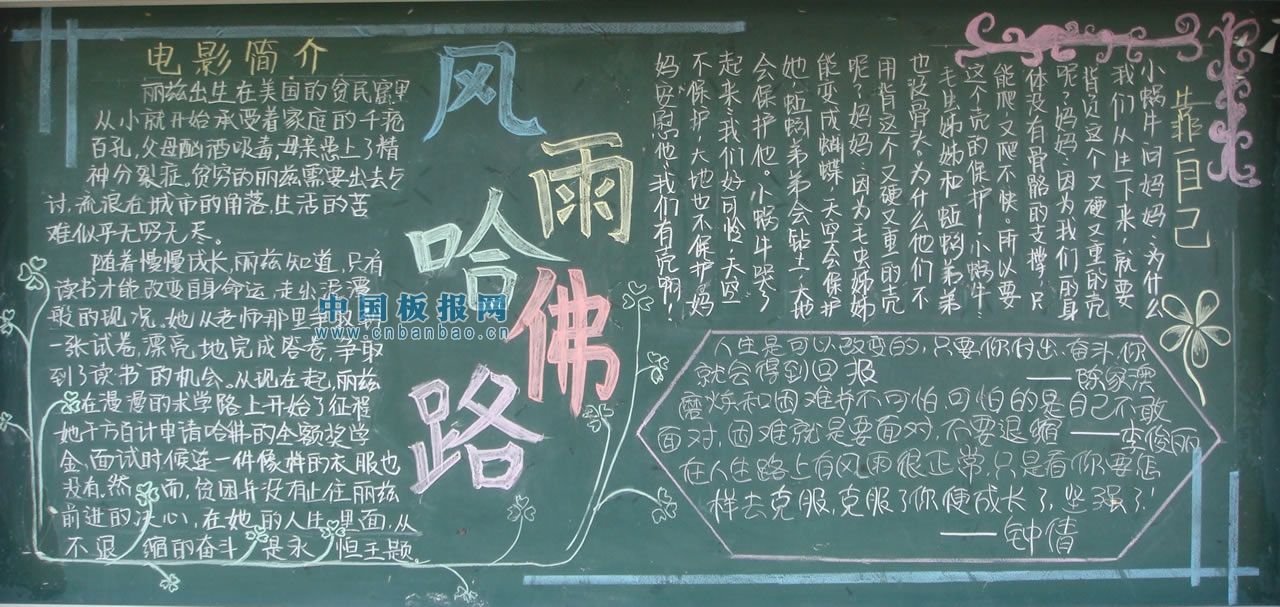 电影简介
丽兹出生在美国的贫民窟里
从小就开始承受着家庭的千疮
百孔,父母酗酒吸毒,母亲患上了精
神分裂症。贫穷的丽兹需要出去乞
讨,流浪在城市的角落,生活的苦
难似乎无穷无尽。
随着慢慢成长,丽兹知道,只有
读书才能改变自身命运,走出泥潭
般的现况。她从老师那里
一张试卷,漂亮地完成答卷,争取
到了读书的机会。从现在起,丽兹
在漫漫的求学路上开始了征程
她千方百计申请哈佛的全额奖学
金,面试时候连一件像样的衣服也
没有。然而,贫困并没有止住丽兹
前进的决心,在她的人生里面,从
不退缩的奋斗是永恒主题
风
雨
哈
佛
路
中国板报网
www.cnbanbao.cn
靠自己
小蜗牛问妈妈:为什么
我们从生下来,就要
背这个又硬又重的壳
呢?妈妈:因为我们的身
体没有骨骼的支撑,只
能爬,又爬不快。所以要
这个壳的保护!小蜗牛:
毛虫姊姊和蚯蚓弟弟
也没骨头。为什么他们不
用背这个又硬又重的壳
呢?妈妈:因为毛虫姊姊
能变成蝴蝶,天空会保护
她,蚯蚓弟弟会钻土,大地
会保护他。小蜗牛哭了
起来:我们好可怜,天空
不保护,大地也不保护。妈
妈安慰他:我们有壳啊!
人生是可以改变的,只要你付出、奋斗,你
就会得到回报
——陈家澳
磨炼和困难并不可怕,可怕的是自己不敢
面对,困难就是要面对,不要退缩——李俊丽
在人生路上有风雨很正常,只是看你要怎
样去克服,克服了你便成长了,坚强了!
——钟倩